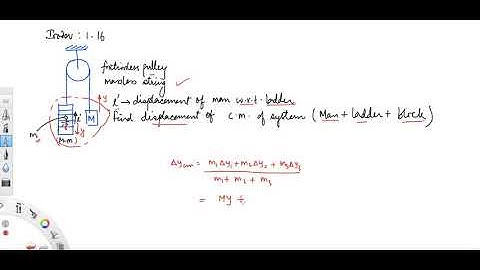 Irodov : 1.16
frictionless pulley
massless string
y
l' → displacement of man w.r.t. ladder
l'
M
Find displacement of c.m. of system (Man + ladder + block)
y
m
(M-m)
Δycm = m₁Δy₁ + m₂Δy₂ + m₃Δy₃
m₁ + m₂ + m₃
= My +